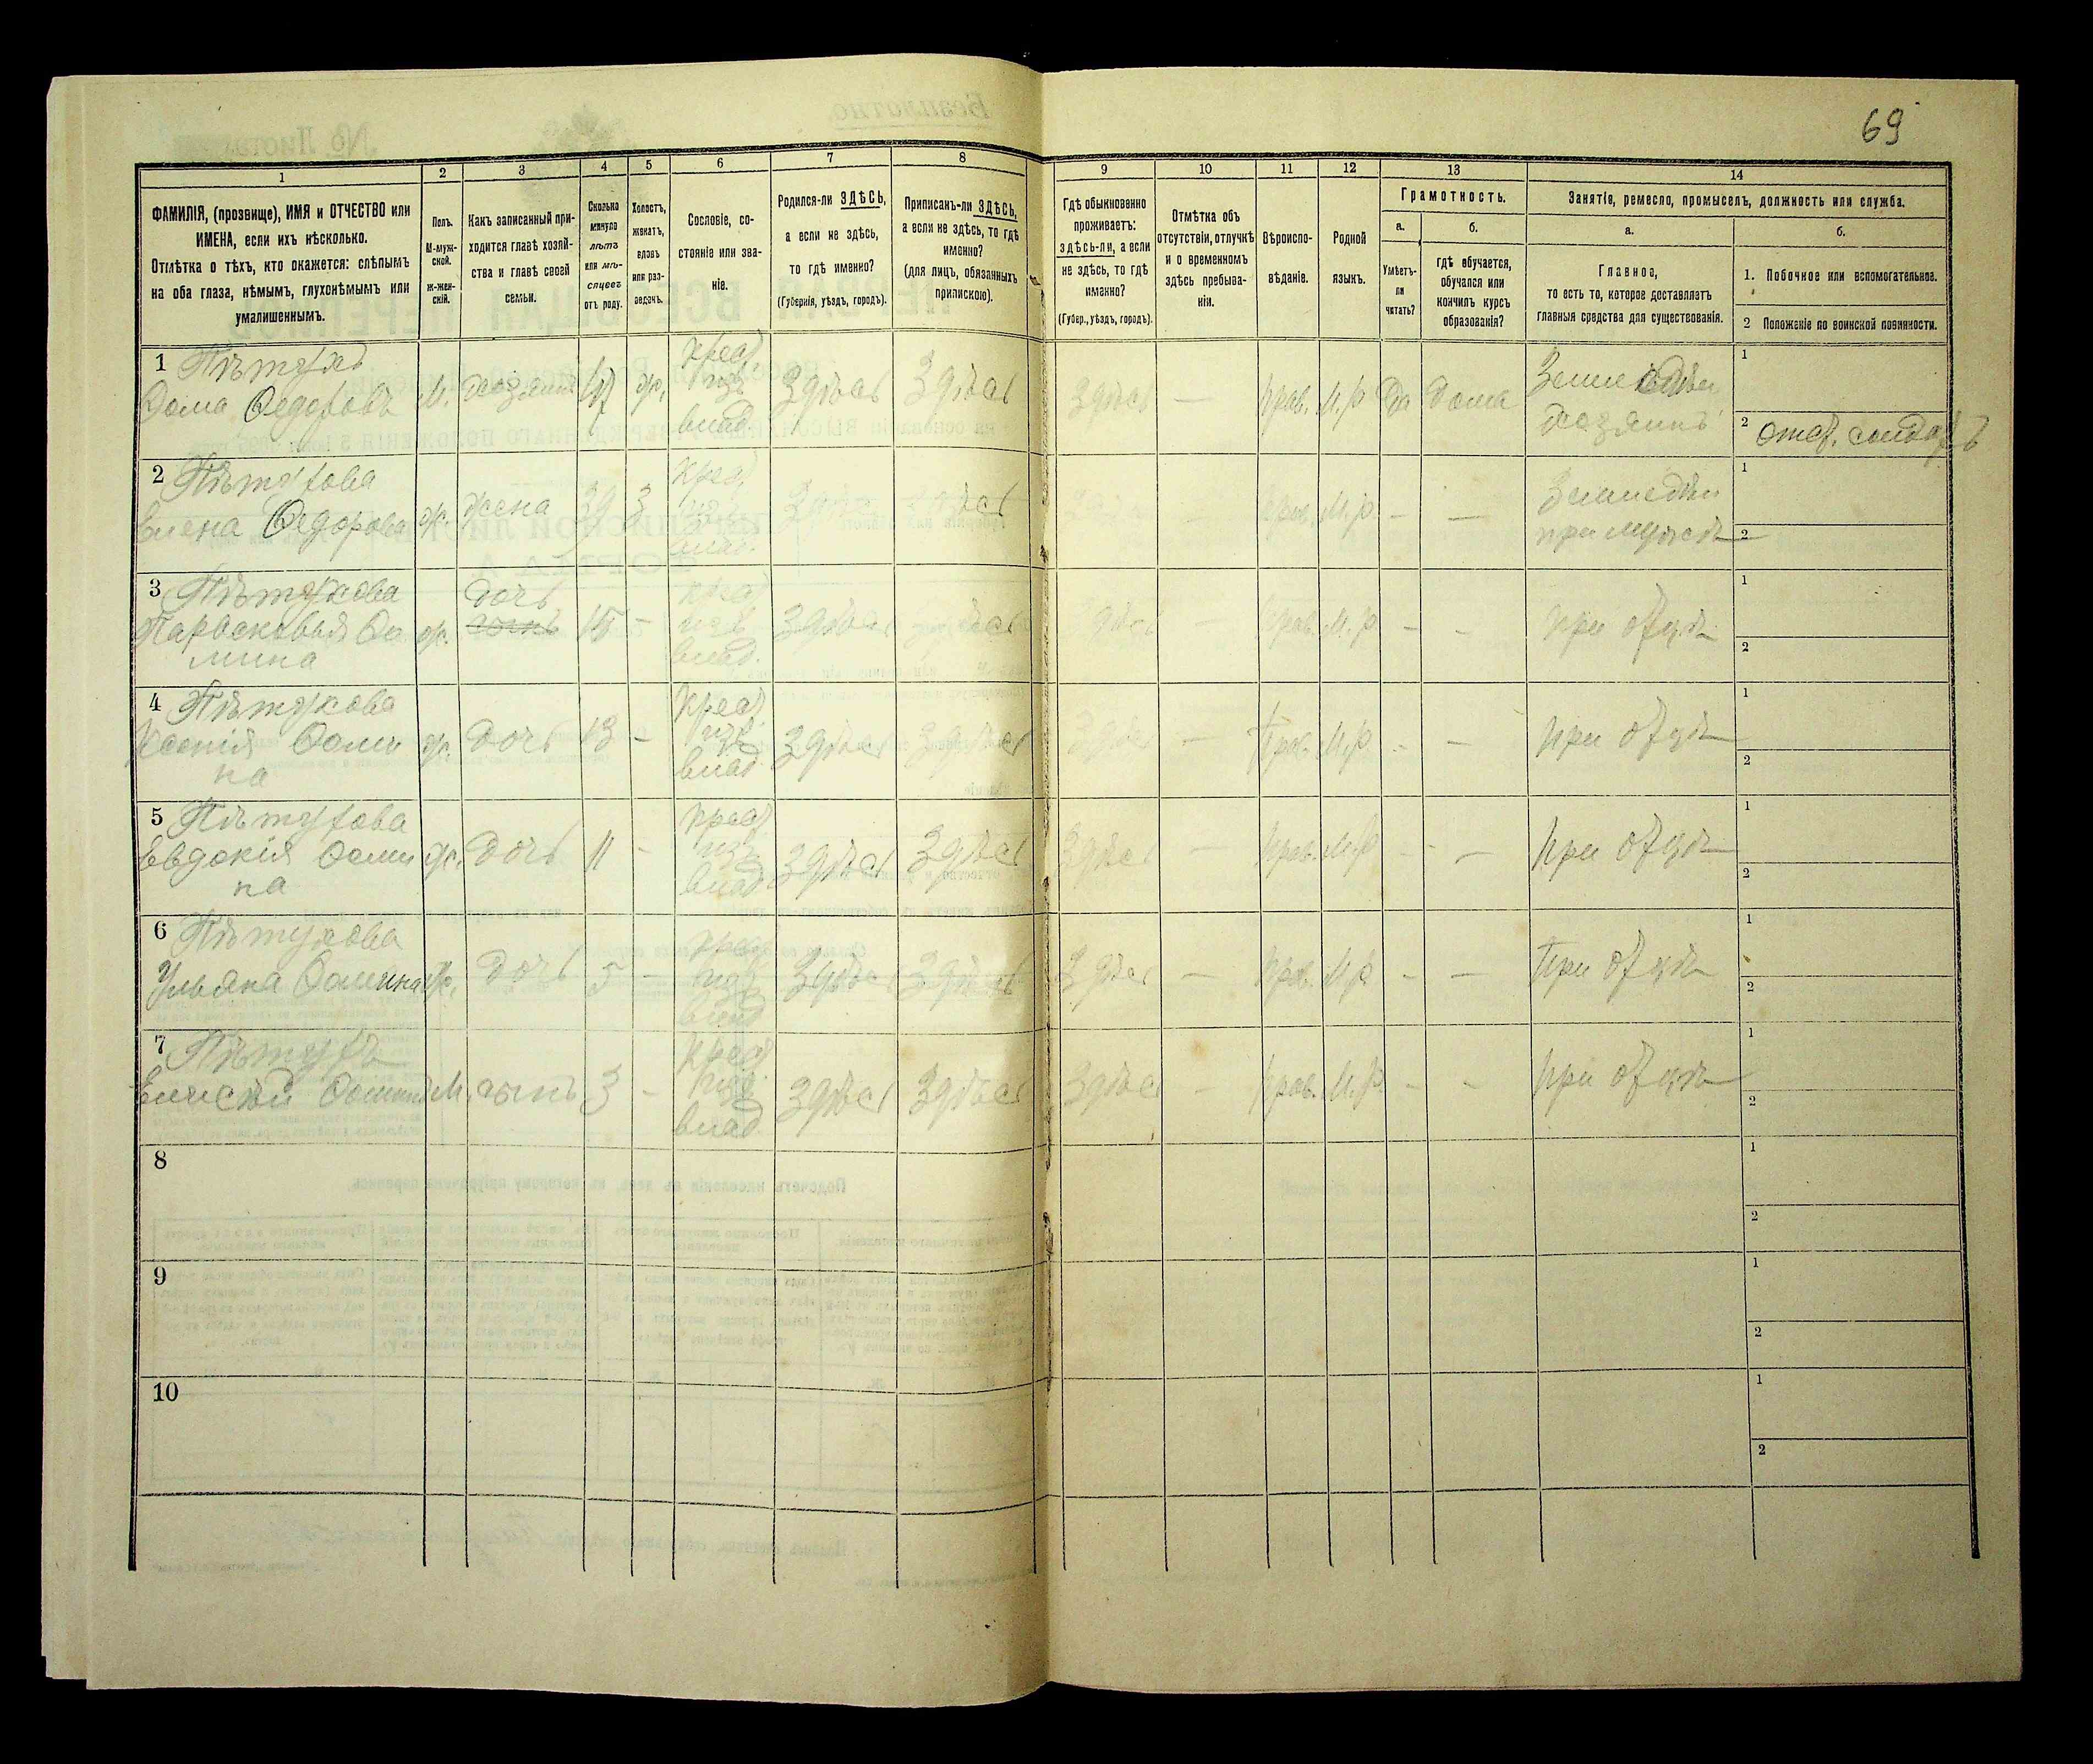 69
1
2
3
4
5
6
7
8
ФАМИЛІЯ, (прозвище), ИМЯ и ОТЧЕСТВО или
ИМЕНА, если ихъ нѣсколько.
Отмѣтка о тѣхъ, кто окажется: слѣпымъ
на оба глаза, нѣмымъ, глухонѣмымъ или
умалишеннымъ.
Полъ.
М-муж-
ской.
ж-жен-
скій.
Какъ записанный при-
ходится главѣ хозяй-
ства и главѣ своей
семьи.
Сколько
минуло
лѣтъ
или мѣ-
сяцевъ
отъ роду.
Холостъ,
женатъ,
вдовъ
или раз-
веденъ.
Сословіе, со-
стояніе или зва-
ніе.
Родился-ли ЗДѢСЬ,
а если не здѣсь,
то гдѣ именно?
(Губернія, уѣздъ, городъ).
Приписанъ-ли ЗДѢСЬ,
а если не здѣсь, то гдѣ
именно?
(для лицъ, обязанныхъ
припискою).
9
10
11
12
13
14
Гдѣ обыкновенно
проживаетъ:
здѣсь-ли, а если
не здѣсь, то гдѣ
именно?
(Губер., уѣздъ, городъ).
Отмѣтка объ
отсутствіи, отлучкѣ
и о временномъ
здѣсь пребыва-
ніи.
Вѣроиспо-
вѣданіе.
Родной
языкъ.
Грамотность.
а.
Умѣетъ-
ли
читать?
б.
гдѣ обучается,
обучался или
кончилъ курсъ
образованія?
Занятіе, ремесло, промыселъ, должность или служба.
а.
Главное,
то есть то, которое доставляетъ
главныя средства для существованія.
б.
1. Побочное или вспомогательное.
2 Положеніе по воинской повинности.
1 Пѣтухъ
Фома Федоровъ М. хозяинъ ж. Крест. изъ влад. Здѣсь Здѣсь Здѣсь — Прав. М.р. Да Дома
хозяинъ
1
2 отст. солдатъ
2 Пѣтухова
Елена Федорова ж. жена 39 З Крест. изъ влад. Здѣсь Здѣсь Здѣсь — Прав. М.р. — — Земледѣл.
при мужѣ
1
2
3 Пѣтухова
Парасковья Фо
мина ж. дочь 15 - Крест. изъ влад. Здѣсь Здѣсь Здѣсь Прав. М.р. - - при отцѣ
1
2
4 Пѣтухова
Ксенія Фоми
на ж. дочь 13 - Крест. изъ влад. Здѣсь Здѣсь Здѣсь — Прав. М.р. - - при отцѣ
1
2
5 Пѣтухова
Евдокія Фоми
на ж. дочь 11 - Крест. изъ влад. Здѣсь Здѣсь Здѣсь — Прав. М.р. - - при отцѣ
1
2
6 Пѣтухова
Ульяна Фомина ж. дочь 5 - Крест. изъ влад. Здѣсь Здѣсь Здѣсь — Прав. М.р. - - При отцѣ
1
2
7 Пѣтухъ
Елисѣй Фоминъ М. сынъ 3 - Крест. изъ влад. Здѣсь Здѣсь Здѣсь - Прав. М.р. - - при отцѣ
1
2
8
1
2
9
1
2
10
1
2